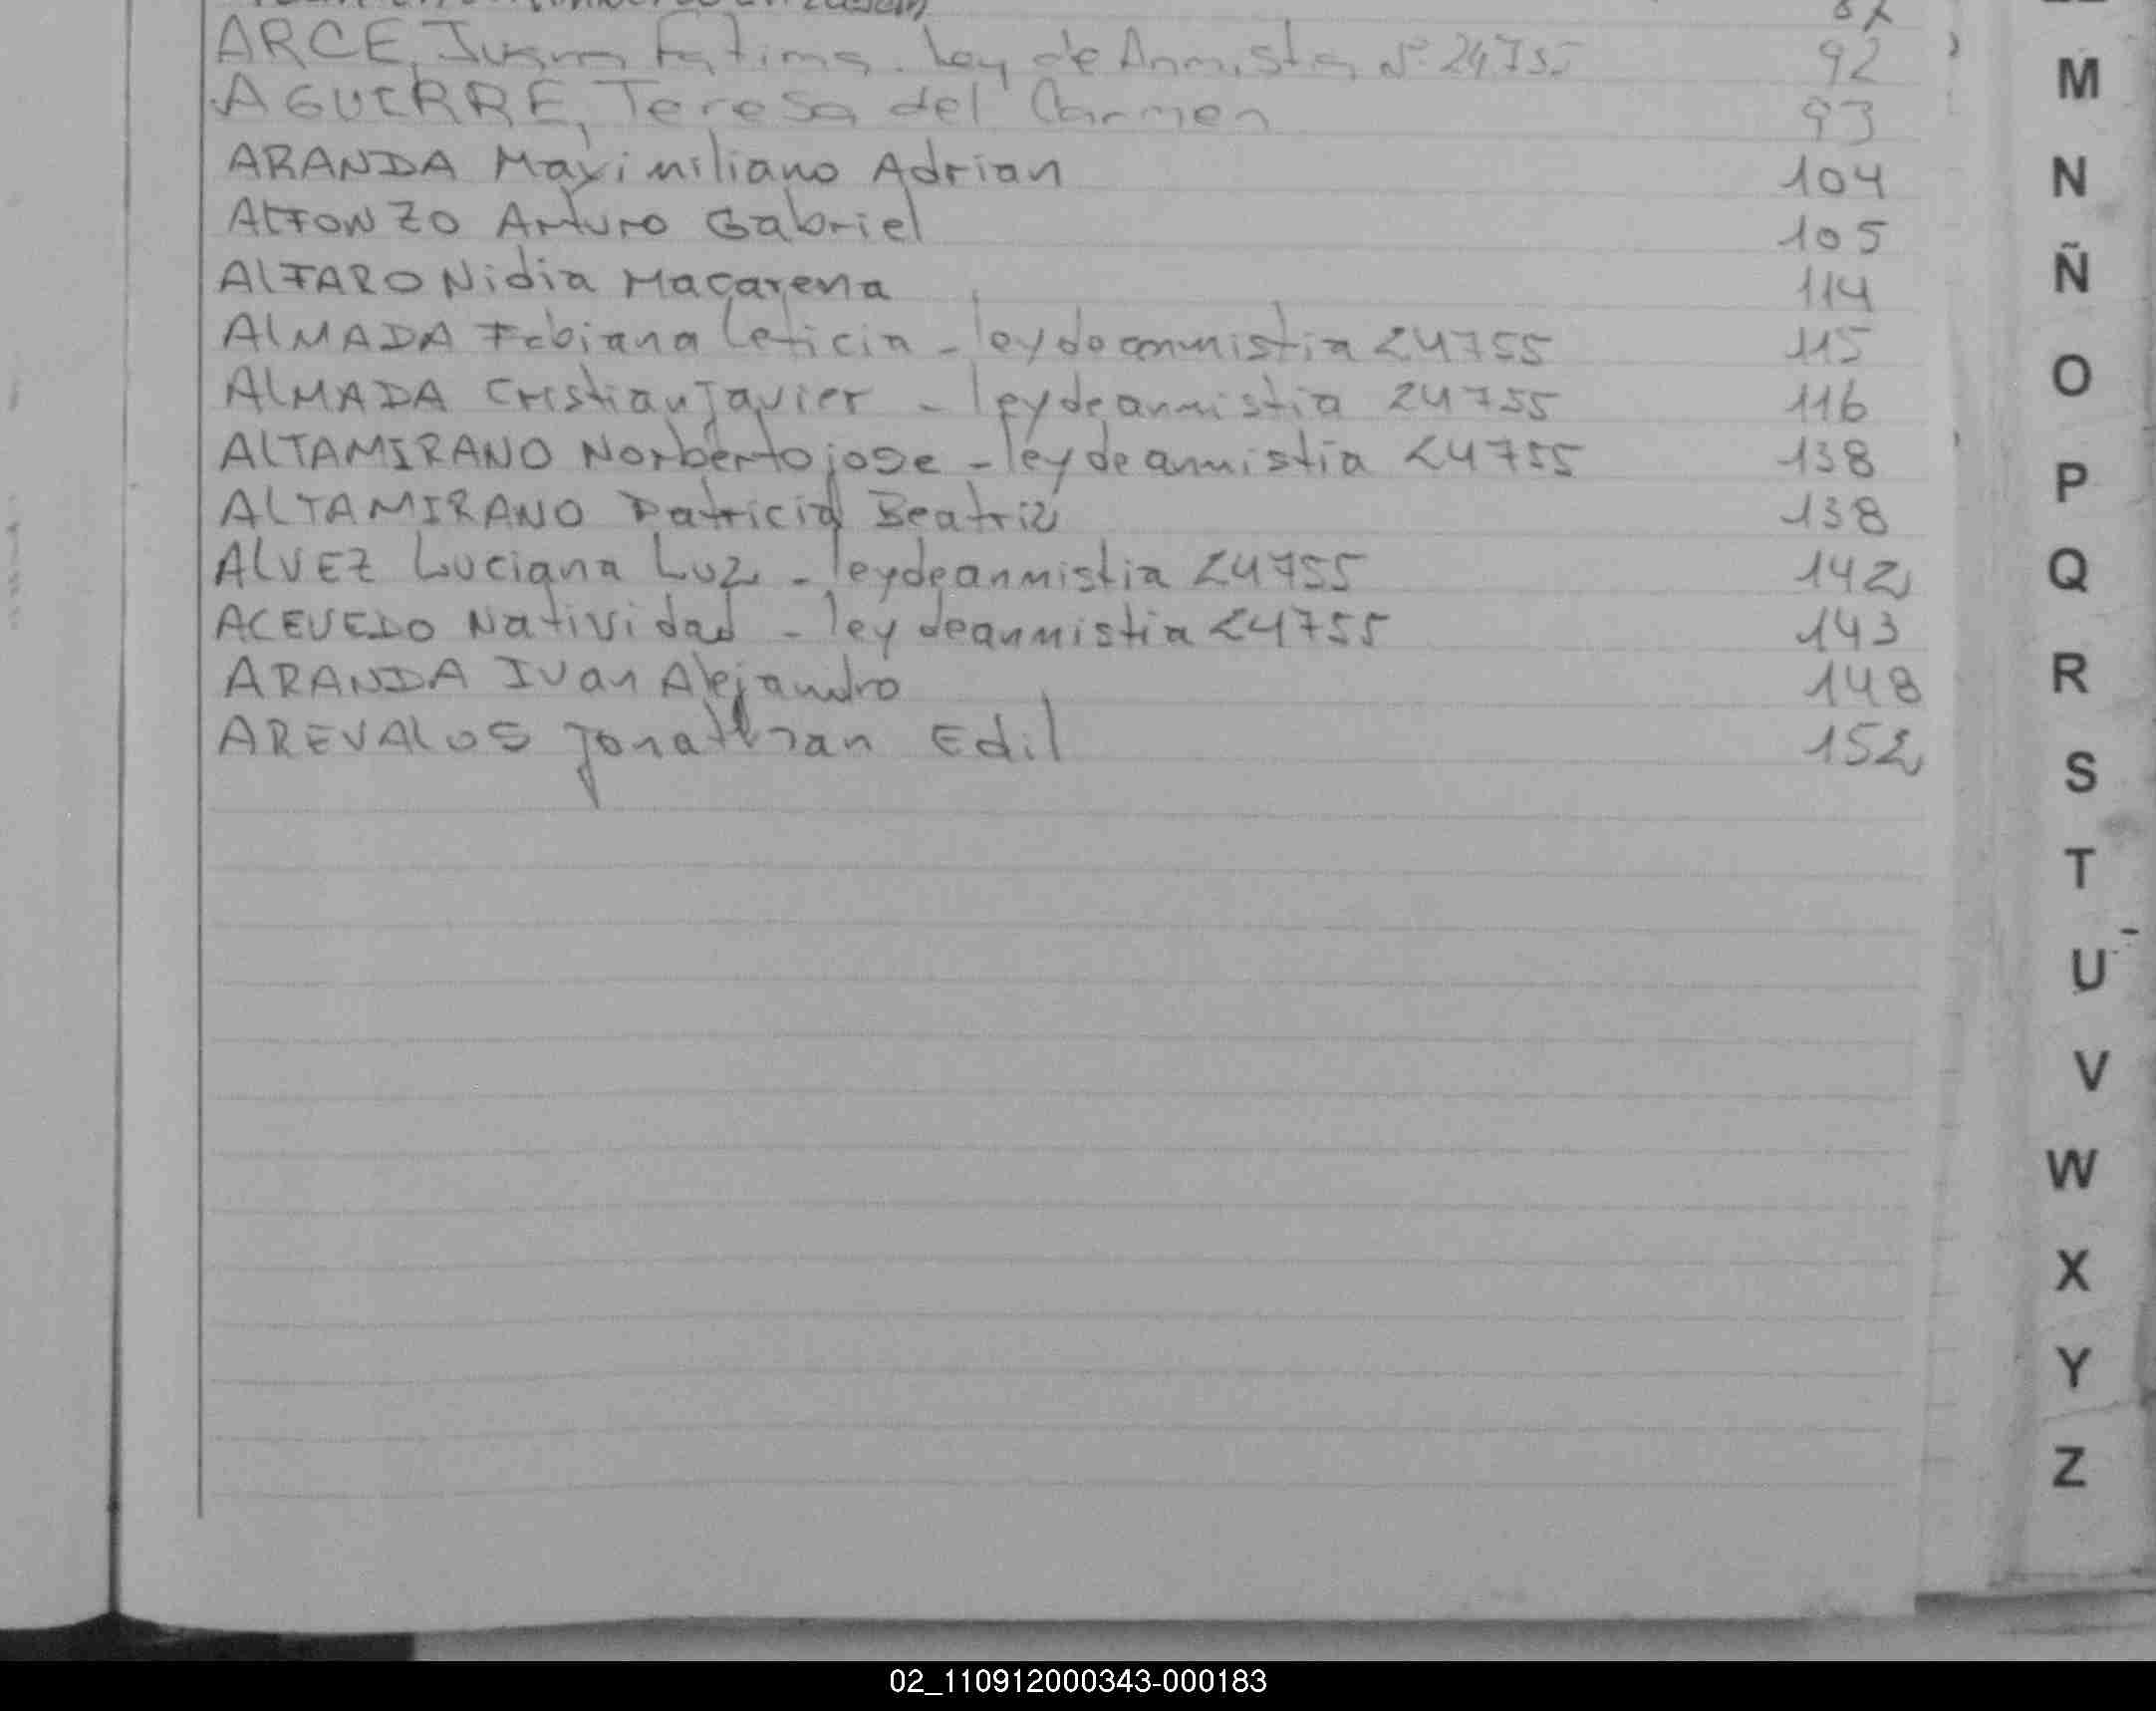 ARCE, Juana Fatima. Ley de Anmistia Nº 24755 92
AGUIRRE, Teresa del Carmen 93
ARANDA Maximiliano Adrian 104
ALFONZO Arturo Gabriel 105
ALFARO Nidia Macarena 114
ALMADA Fabiana Leticia - ley de anmistia 24755 115
ALMADA Cristian Javier - ley de anmistia 24755 116
ALTAMIRANO Norberto jose - ley de anmistia 24755 138
ALTAMIRANO Patricia Beatriz 138
ALVEZ Luciana Luz - ley de anmistia 24755 142
ACEVEDO Natividad - ley de anmistia 24755 143
ARANDA Ivan Alejandro 148
AREVALOS Jonathan Edil 152
M
N
Ñ
O
P
Q
R
S
T
U
V
W
X
Y
Z
02_110912000343-000183